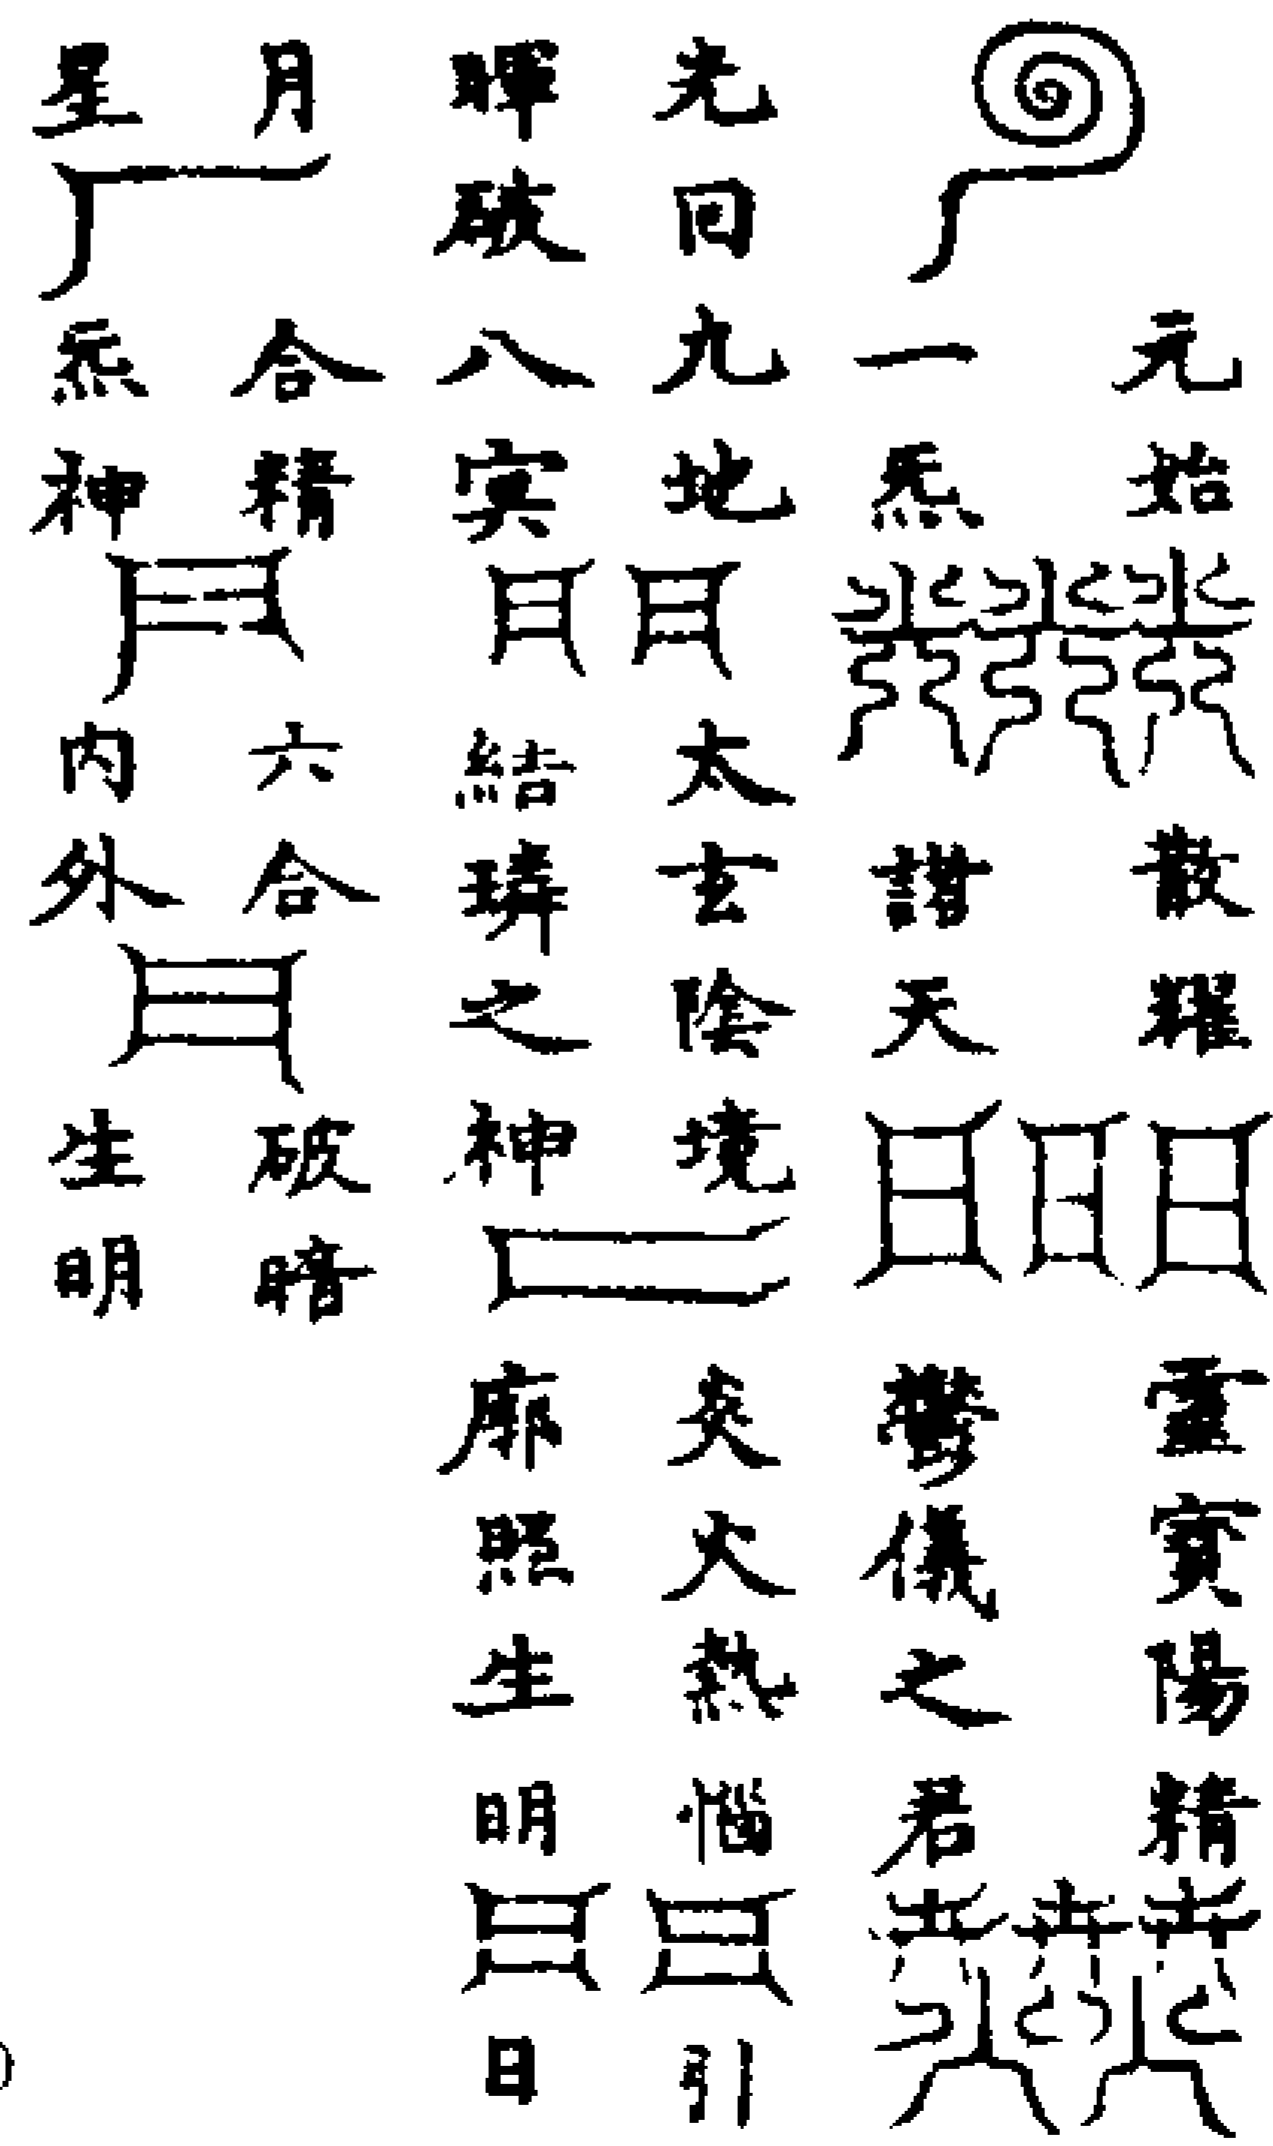 元始散耀靈寶陽精
一炁天鬱儀之君
光囘九地太玄陰境炎火熱惱引
暉破八㝠結璘之神廓照生明日
月合精六合破暗
星炁神內外生明